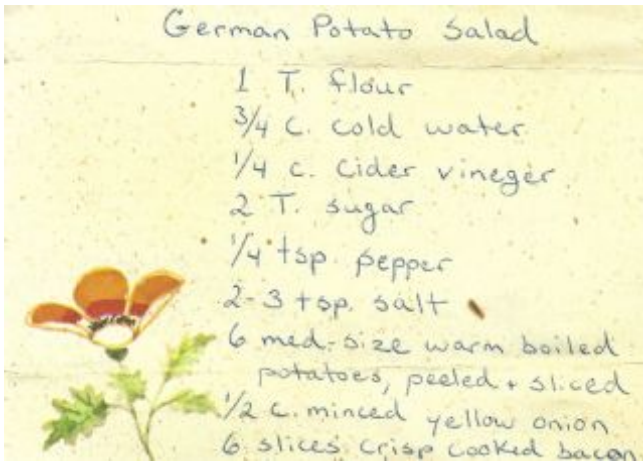 German Potato Salad
1 T. flour
3/4 c. cold water
1/4 c. cider vineger
2 T. sugar
1/4 tsp. pepper
2-3 tsp. salt
6 med.-size warm boiled
potatoes, peeled + sliced
1/2 c. minced yellow onion
6 slices crisp cooked bacon